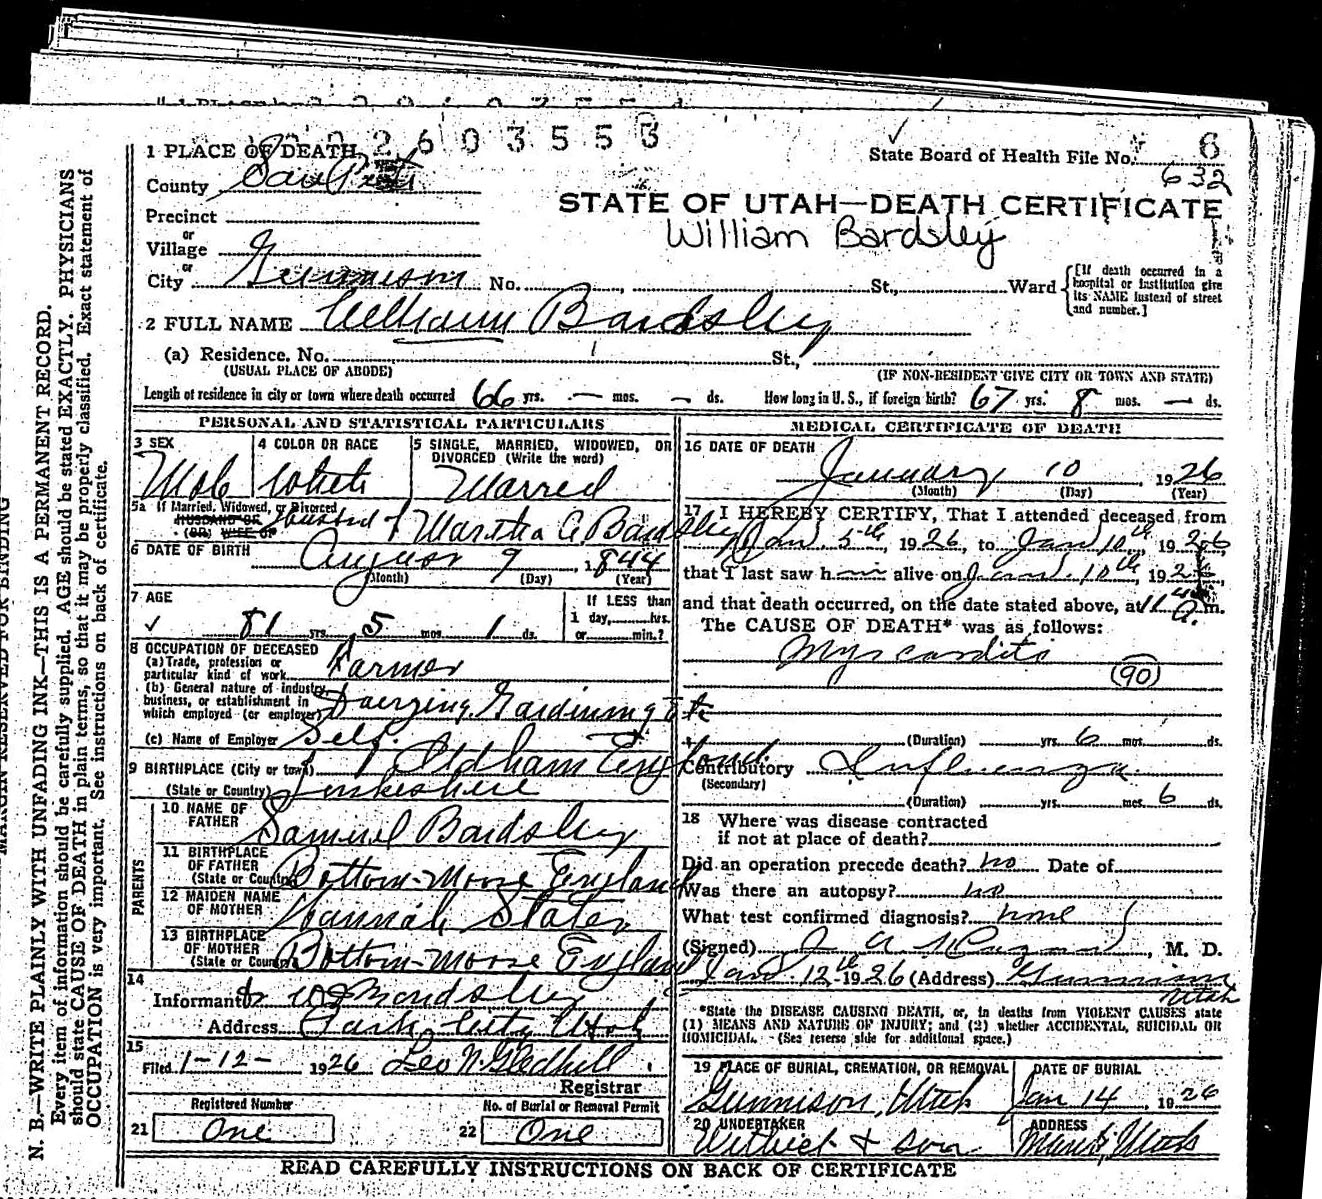 2603553
1 PLACE OF DEATH
State Board of Health File No. 6
632
County SanPete
STATE OF UTAH—DEATH CERTIFICATE
William Bardsley
Precinct
or
Village
or
City Gunnison No. St., Ward
[If death occurred in a hospital or institution give its NAME instead of street and number.]
2 FULL NAME William Bardsley
(a) Residence. No. St.,
(USUAL PLACE OF ABODE) (IF NON-RESIDENT GIVE CITY OR TOWN AND STATE)
Length of residence in city or town where death occurred 66 yrs. — mos. — ds. How long in U. S., if foreign birth? 67 yrs. 8 mos. — ds.
PERSONAL AND STATISTICAL PARTICULARS
3 SEX 4 COLOR OR RACE 5 SINGLE, MARRIED, WIDOWED, OR DIVORCED (Write the word)
Male White Married
5a If Married, Widowed, or Divorced
HUSBAND OF
(OR) WIFE OF Husband of Martha A. Bardsley
6 DATE OF BIRTH August 9, 1844
(Month) (Day) (Year)
7 AGE If LESS than
1 day, hrs.
✓ 81 yrs. 5 mos. 1 ds. or min.?
8 OCCUPATION OF DECEASED
(a) Trade, profession or particular kind of work Farmer
(b) General nature of industry, business, or establishment in which employed (or employer) Gardining Etc
(c) Name of Employer Self.
9 BIRTHPLACE (City or town) Oldham England
(State or Country)
PARENTS
10 NAME OF FATHER Samuel Bardsley
11 BIRTHPLACE OF FATHER (State or Country) Bottom-Moore England
12 MAIDEN NAME OF MOTHER Hannah Slater
13 BIRTHPLACE OF MOTHER (State or Country) Bottom-Moore England
14
Informant Bardsley
Address Park City Utah
15
Filed 1-12- 1926 Leo N. Gledhill
Registrar
Registered Number No. of Burial or Removal Permit
21 One 22 One
MEDICAL CERTIFICATE OF DEATH
16 DATE OF DEATH
January 10 1926
(Month) (Day) (Year)
17 I HEREBY CERTIFY, That I attended deceased from
Jan. 5th, 1926, to Jan 10th, 1926
that I last saw him alive on Jan. 10th, 1926,
and that death occurred, on the date stated above, at 11 a.m.
The CAUSE OF DEATH* was as follows:
Myocarditis
90
(Duration) yrs. 6 mos. ds.
Contributory Influenza
(Secondary)
(Duration) yrs. mos. 6 ds.
18 Where was disease contracted
if not at place of death?
Did an operation precede death? no Date of
Was there an autopsy? no
What test confirmed diagnosis? none
(Signed) , M. D.
Jan. 12th 1926 (Address) Gunnison
Utah
*State the DISEASE CAUSING DEATH, or, in deaths from VIOLENT CAUSES state
(1) MEANS AND NATURE OF INJURY; and (2) whether ACCIDENTAL, SUICIDAL OR
HOMICIDAL. (See reverse side for additional space.)
19 PLACE OF BURIAL, CREMATION, OR REMOVAL DATE OF BURIAL
Gunnison, Utah Jan 14, 1926
20 UNDERTAKER ADDRESS
& Son Manti, Utah
READ CAREFULLY INSTRUCTIONS ON BACK OF CERTIFICATE
MARGIN RESERVED FOR BINDING
N. B.—WRITE PLAINLY WITH UNFADING INK—THIS IS A PERMANENT RECORD.
Every item of information should be carefully supplied. AGE should be stated EXACTLY. PHYSICIANS
should state CAUSE OF DEATH in plain terms, so that it may be properly classified. Exact statement of
OCCUPATION is very important. See instructions on back of certificate.